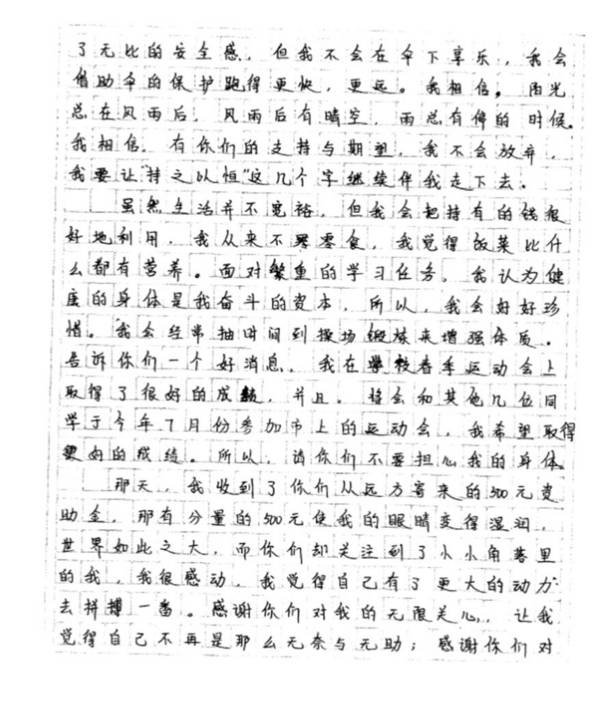 了无比的安全感，但我不会在伞下享乐，我会
借助伞的保护跑得更快，更远。我相信，阳光
总在风雨后，风雨后有晴空，雨总有停的时候。
我相信，有你们的支持与期望，我不会放弃，
我要让“持之以恒”这几个字继续伴我走下去。
虽然生活并不宽裕，但我会把持有的钱很
好地利用，我从来不买零食，我觉得饭菜比什
么都有营养。面对繁重的学习任务，我认为健
康的身体是我奋斗的资本，所以，我会好好珍
惜。我会经常抽时间到操场锻炼来增强体质。
告诉你们一个好消息，我在学校春季运动会上
取得了很好的成绩，并且，将会和其他几位同
学于今年7月份参加市上的运动会，我希望取得
更好的成绩。所以，请你们不要担心我的身体。
那天，我收到了你们从远方寄来的500元资
助金，那有分量的500元使我的眼睛变得湿润，
世界如此之大，而你们却关注到了小小角落里
的我，我很感动，我觉得自己有了更大的动力
去拼搏一番。感谢你们对我的无限关心，让我
觉得自己不再是那么无奈与无助；感谢你们对